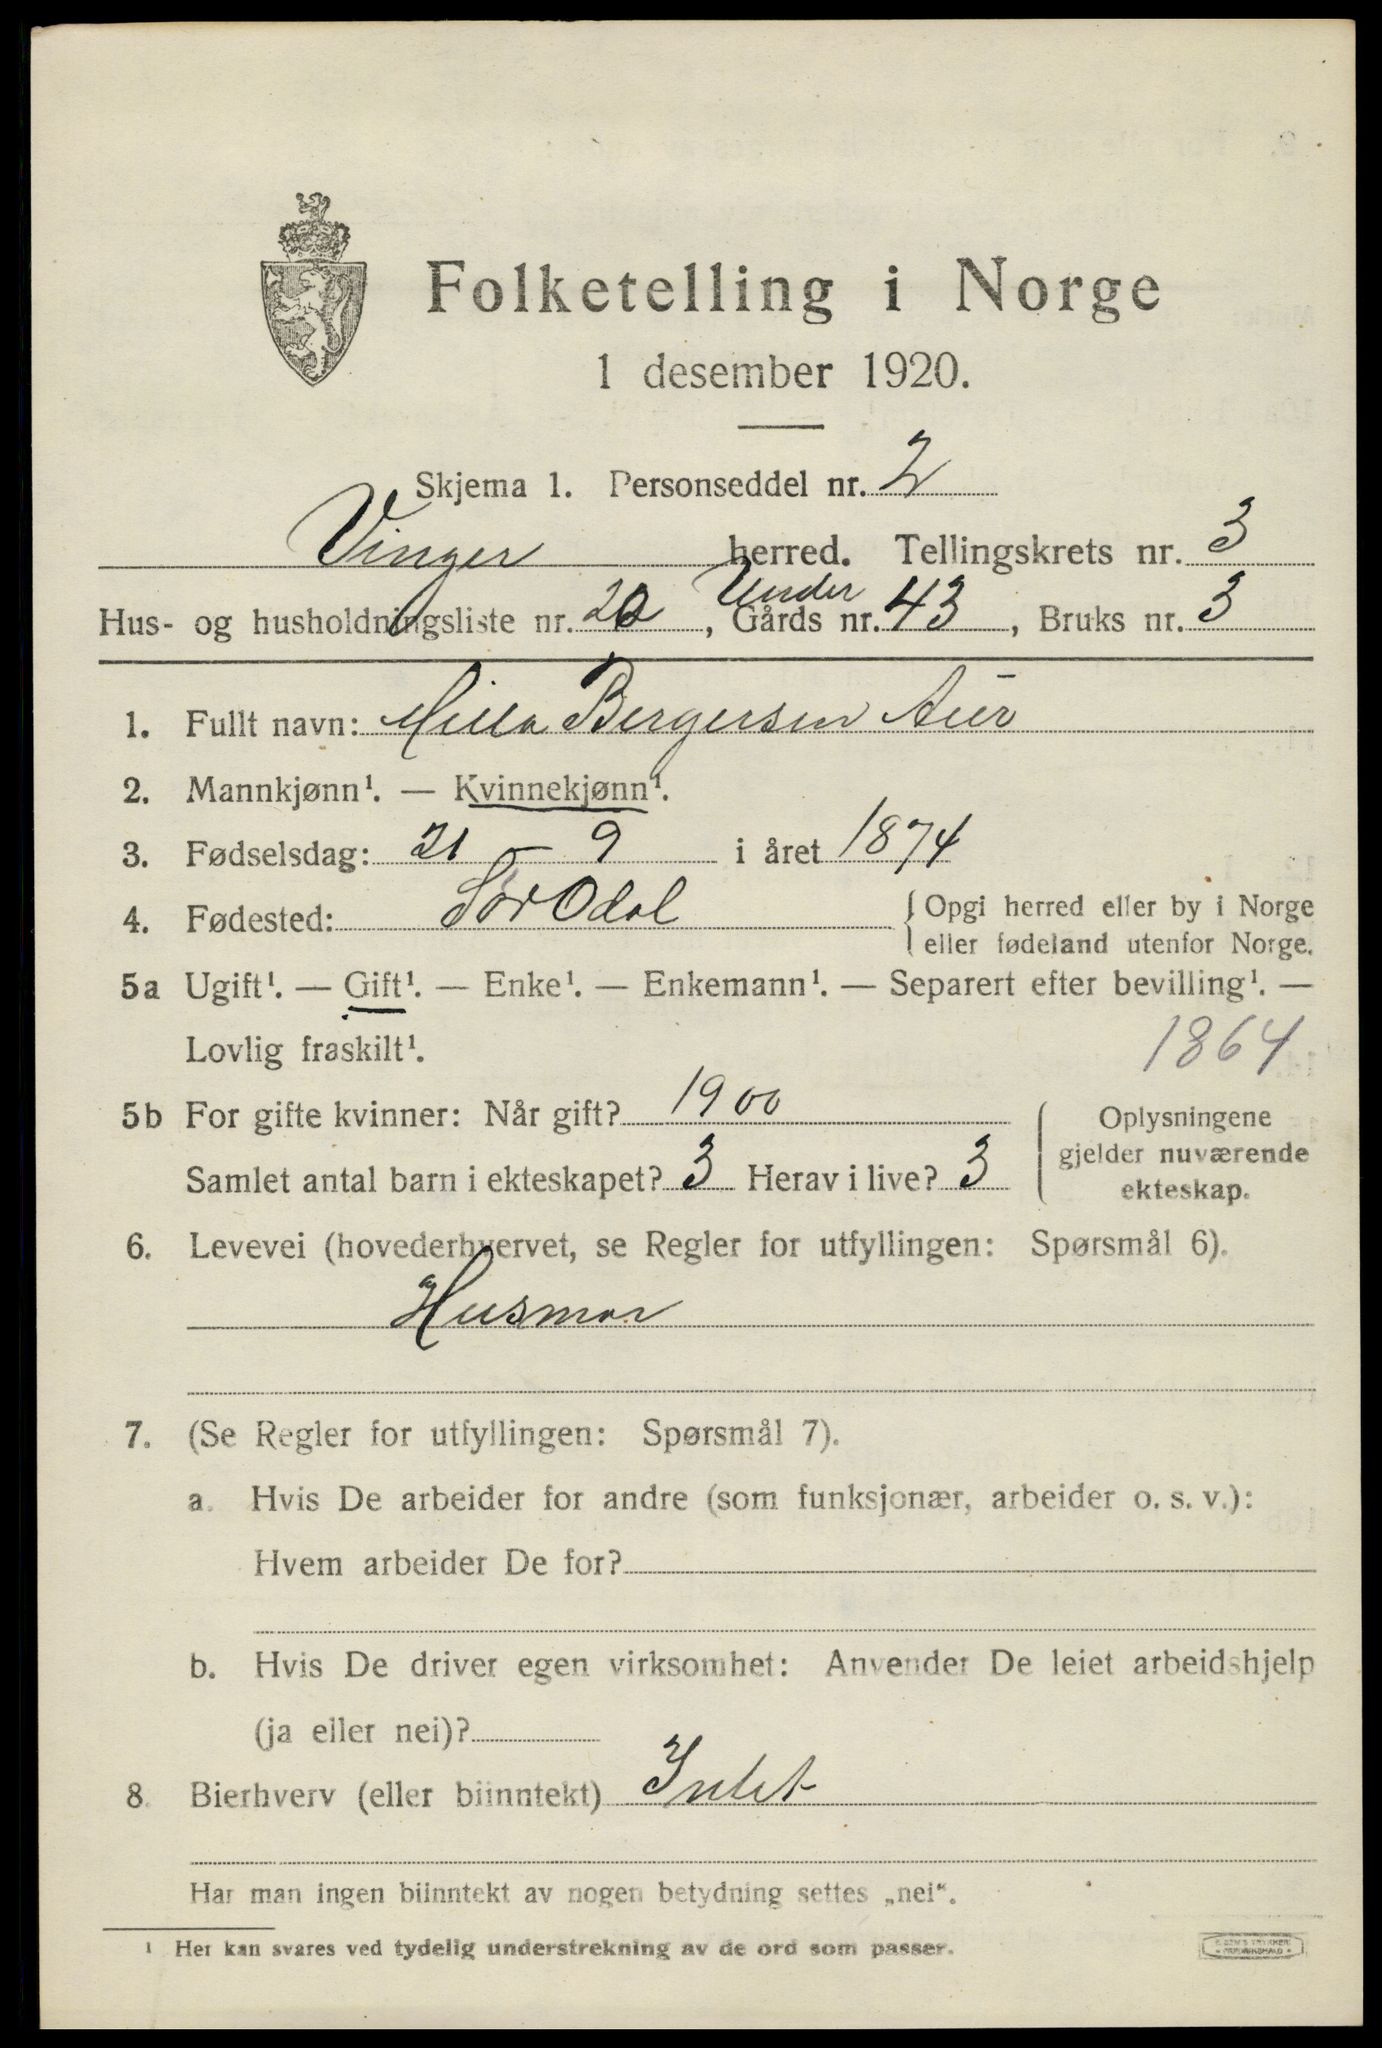 Folketelling i Norge
1 desember 1920.
Skjema 1. Personseddel nr. 2
Vinger herred. Tellingskrets nr. 3
Under
Hus- og husholdningsliste nr. 20, Gårds nr. 43, Bruks nr. 3
1. Fullt navn: Milla Bergersen Aur
2. Mannkjønn¹. — Kvinnekjønn¹.
3. Fødselsdag: 21 - 9 i året 1874
4. Fødested: Sør Odal { Opgi herred eller by i Norge
eller fødeland utenfor Norge.
5a Ugift¹. — Gift¹. — Enke¹. — Enkemann¹. — Separert efter bevilling¹. —
Lovlig fraskilt¹. 1864
5b For gifte kvinner: Når gift? 1900
Samlet antal barn i ekteskapet? 3 Herav i live? 3
Oplysningene
gjelder nuværende
ekteskap.
6. Levevei (hovederhvervet, se Regler for utfyllingen: Spørsmål 6).
Husmor
7. (Se Regler for utfyllingen: Spørsmål 7).
a. Hvis De arbeider for andre (som funksjonær, arbeider o. s. v.):
Hvem arbeider De for?
b. Hvis De driver egen virksomhet: Anvender De leiet arbeidshjelp
(ja eller nei)?
8. Bierhverv (eller biinntekt) Intet
Har man ingen biinntekt av nogen betydning settes „nei“.
¹ Her kan svares ved tydelig understrekning av de ord som passer.